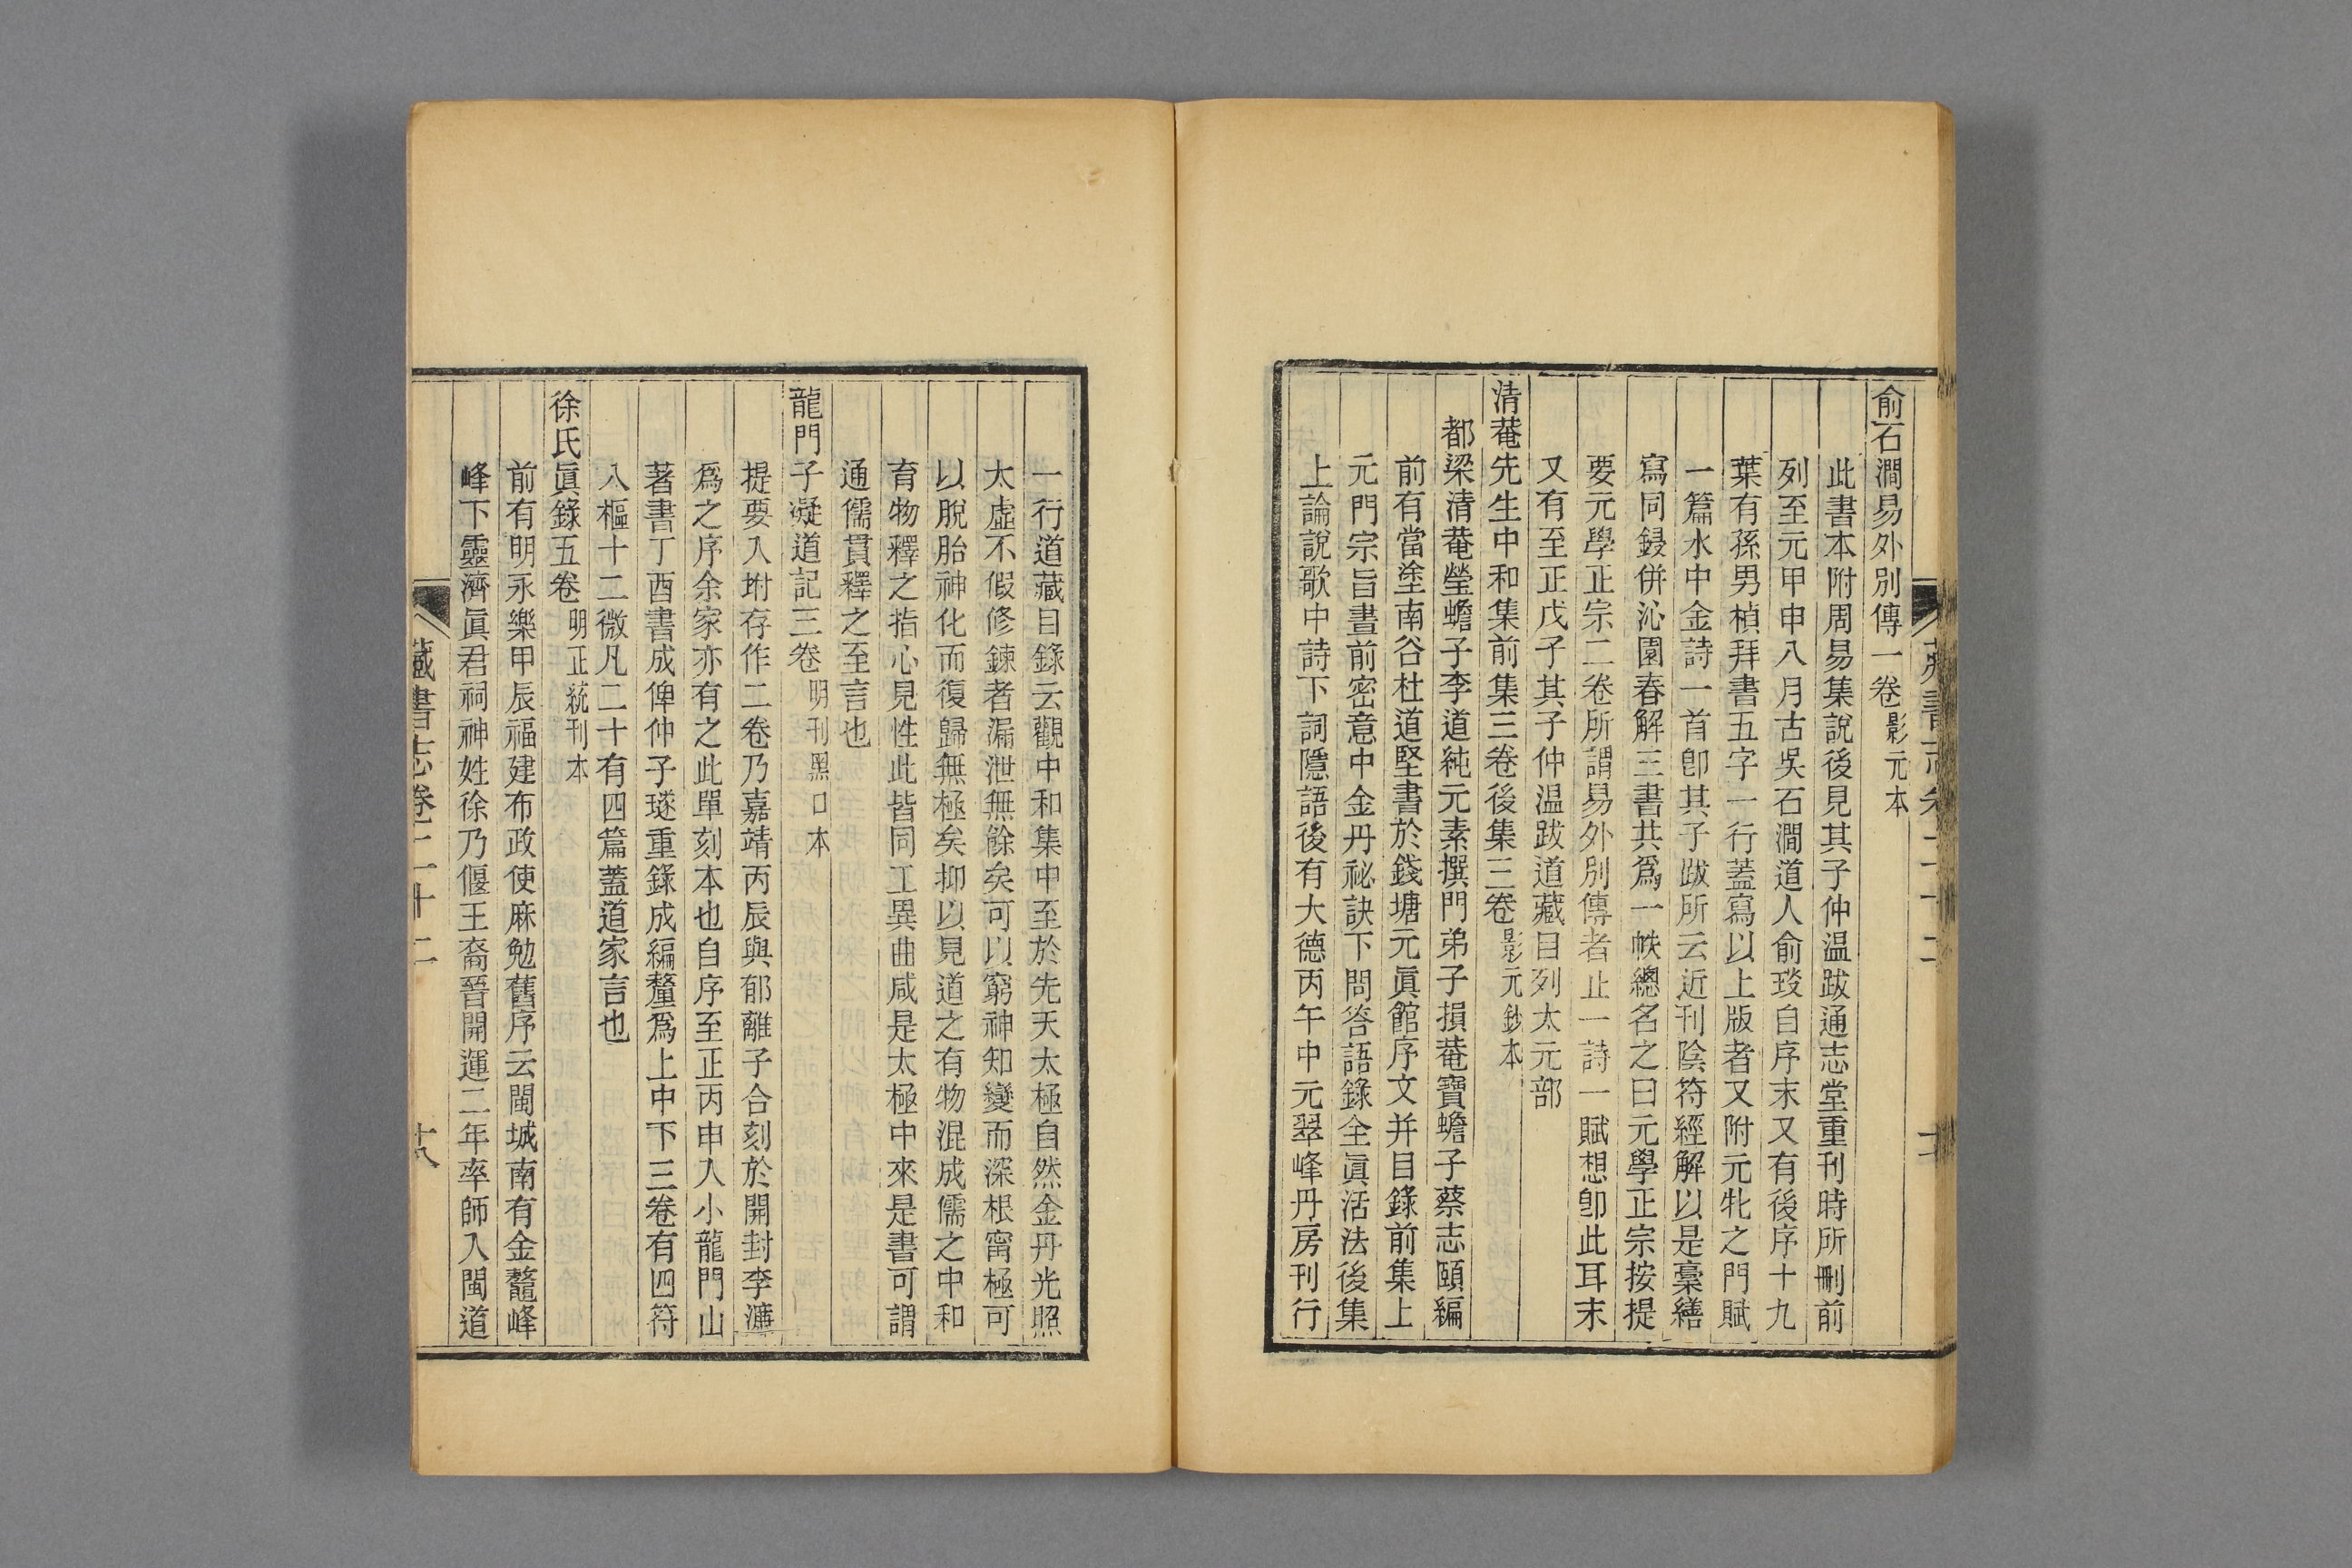 俞石澗易外別傳一卷影元本
此書本附周易集說後見其子仲温跋通志堂重刊時所刪前
列至元甲申八月古吳石澗道人俞琰自序末又有後序十九
葉有孫男楨拜書五字一行蓋寫以上版者又附元牝之門賦
一篇水中金詩一首卽其子跋所云近刊陰符經解以是稾繕
寫同鋟併沁園春解三書共爲一帙總名之曰元學正宗按提
要元學正宗二卷所謂易外別傳者止一詩一賦想卽此耳末
又有至正戊子其子仲温跋道藏目列太元部
清菴先生中和集前集三卷後集三卷影元鈔本
都梁清菴瑩蟾子李道純元素撰門弟子損菴寶蟾子蔡志頤編
前有當塗南谷杜道堅書於錢塘元眞館序文并目錄前集上
元門宗旨晝前密意中金丹祕訣下問答語錄全眞活法後集
上論說歌中詩下詞隱語後有大德丙午中元翠峰丹房刊行
一行道藏目錄云觀中和集中至於先天太極自然金丹光照
太虛不假修鍊者漏泄無餘矣可以窮神知變而深根甯極可
以脫胎神化而復歸無極矣抑以見道之有物混成儒之中和
育物釋之指心見性此皆同工異曲咸是太極中來是書可謂
通儒貫釋之至言也
龍門子凝道記三卷明刊黑口本
提要入坿存作二卷乃嘉靖丙辰與郁離子合刻於開封李濂
爲之序余家亦有之此單刻本也自序至正丙申入小龍門山
著書丁酉書成俾仲子璲重錄成編釐爲上中下三卷有四符
八樞十二微凡二十有四篇蓋道家言也
徐氏眞錄五卷明正統刊本
前有明永樂甲辰福建布政使麻勉舊序云閩城南有金鼇峰
峰下靈濟眞君祠神姓徐乃偃王裔晉開運二年率師入閩道
藏書志卷二十二
十八